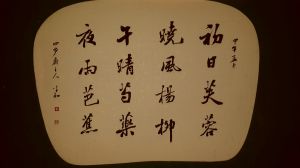 初日芙蓉
曉風楊柳
午晴芍藥
夜雨芭蕉